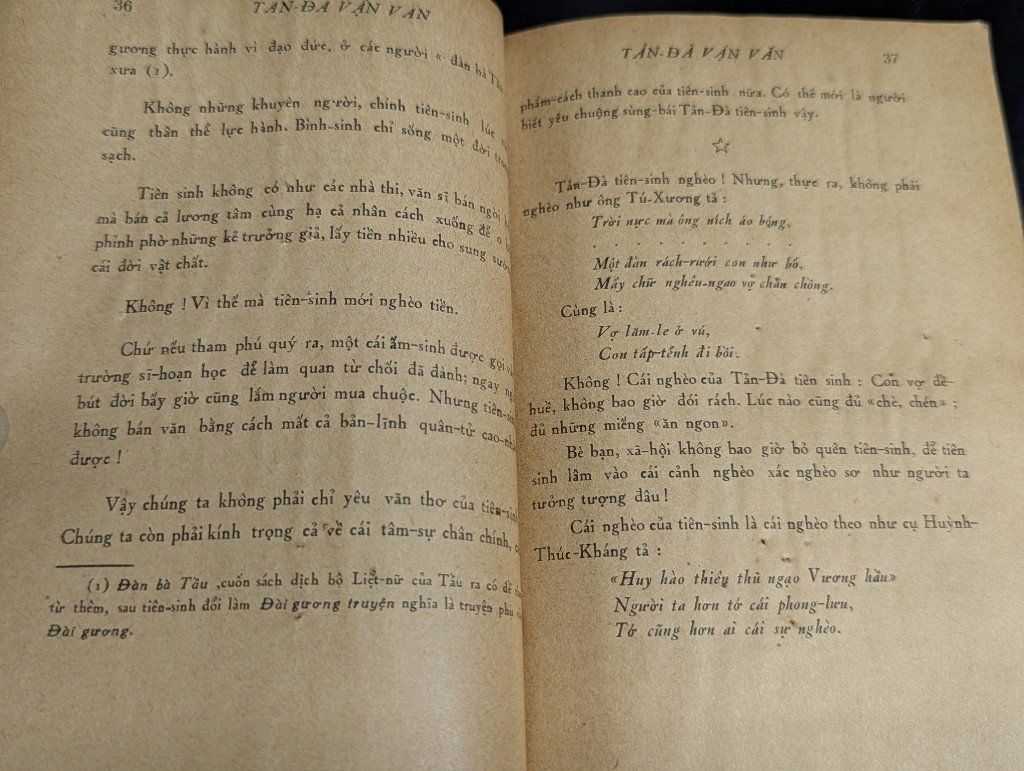 36
TẢN-ĐÀ VẬN VĂN
gương thực hành vì đạo đức, ở các người « đàn bà Tầu
xưa (1).
Không những khuyên người, chính tiên-sinh lúc
cũng thân thể lực hành. Bình-sinh chỉ sống một đời
sạch.
Tiên sinh không có như các nhà thi, văn sĩ bán ngòi
mà bán cả lương tâm cùng hạ cả nhân cách xuống để o
phỉnh phờ những kẻ trưởng giả, lấy tiền nhiều cho sung
cái đời vật chất.
Không ! Vì thế mà tiên-sinh mới nghèo tiền.
Chứ nếu tham phú quý ra, một cái ấm-sinh được gọi
trường sĩ-hoạn học để làm quan từ chối đã đành; ngay
bút đời bấy giờ cũng lắm người mua chuộc. Nhưng
không bán văn bằng cách mất cả bản-lĩnh quân-tử
được !
Vậy chúng ta không phải chỉ yêu văn thơ của tiên-sinh
Chúng ta còn phải kính trọng cả về cái tâm-sự chân chính,
(1) Đàn bà Tầu ,cuốn sách dịch bộ Liệt-nữ của Tầu ra có đề
từ thêm, sau tiên-sinh đổi làm Đài gương truyện nghĩa là truyện phụ
Đài gương.
TẢN-ĐÀ VẬN VĂN
37
phẩm-cách thanh cao của tiên-sinh nữa. Có thế mới là người
biết yêu chuộng sùng-bái Tản-Đà tiên-sinh vậy.
Tản-Đà tiên-sinh nghèo ! Nhưng, thực ra, không phải
nghèo như ông Tú-Xương tả :
Trời nực mà ông ních áo bông,
. . . . . . . . . . .
Một đàn rách-rưới con như bố,
Mấy chữ nghêu-ngao vợ chán chồng.
Cùng là :
Vợ lăm-le ở vú,
Con tấp-tểnh đi bồi.
Không ! Cái nghèo của Tản-Đà tiên sinh : Con vợ đề-
huề, không bao giờ đói rách. Lúc nào cũng đủ «chè, chén» ;
đủ những miếng «ăn ngon».
Bè bạn, xã-hội không bao giờ bỏ quên tiên-sinh, để tiên
sinh lâm vào cái cảnh nghèo xác nghèo sơ như người ta
tưởng tượng đâu !
Cái nghèo của tiên-sinh là cái nghèo theo như cụ Huỳnh-
Thúc-Kháng tả :
«Huy hào thiếu thũ ngạo Vương hầu»
Người ta hơn tớ cái phong-lưu,
Tớ cũng hơn ai cái sự nghèo.